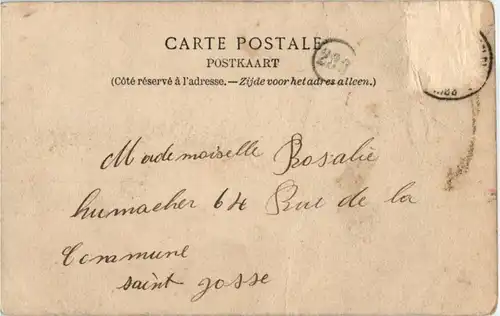 CARTE POSTALE
POSTKAART
(Côté réservé à l'adresse.—Zijde voor het adres alleen.)
233
Mademoiselle Rosalie
humacher 64 Rue de la
Commune
saint josse